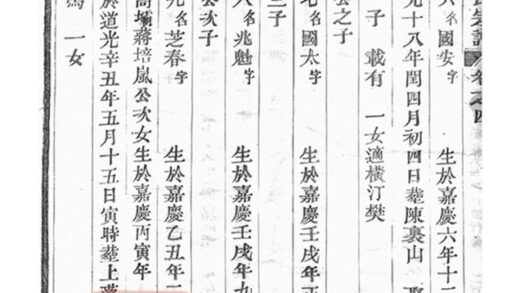 氏宗譜 卷之四
六名國安字 生於嘉慶六年十二
光十八年閏四月初四日塟陳裏山
子 載有 一女適橫汀樊
公之子
七名國太字 生於嘉慶壬戌年正
三子
八名兆魁字 生於嘉慶壬戌年九
公次子
九名芝春字 生於嘉慶乙丑年
高壩蔣培嵐公次女生於嘉慶丙寅年
於道光辛丑年五月十五日寅時塟上
一女